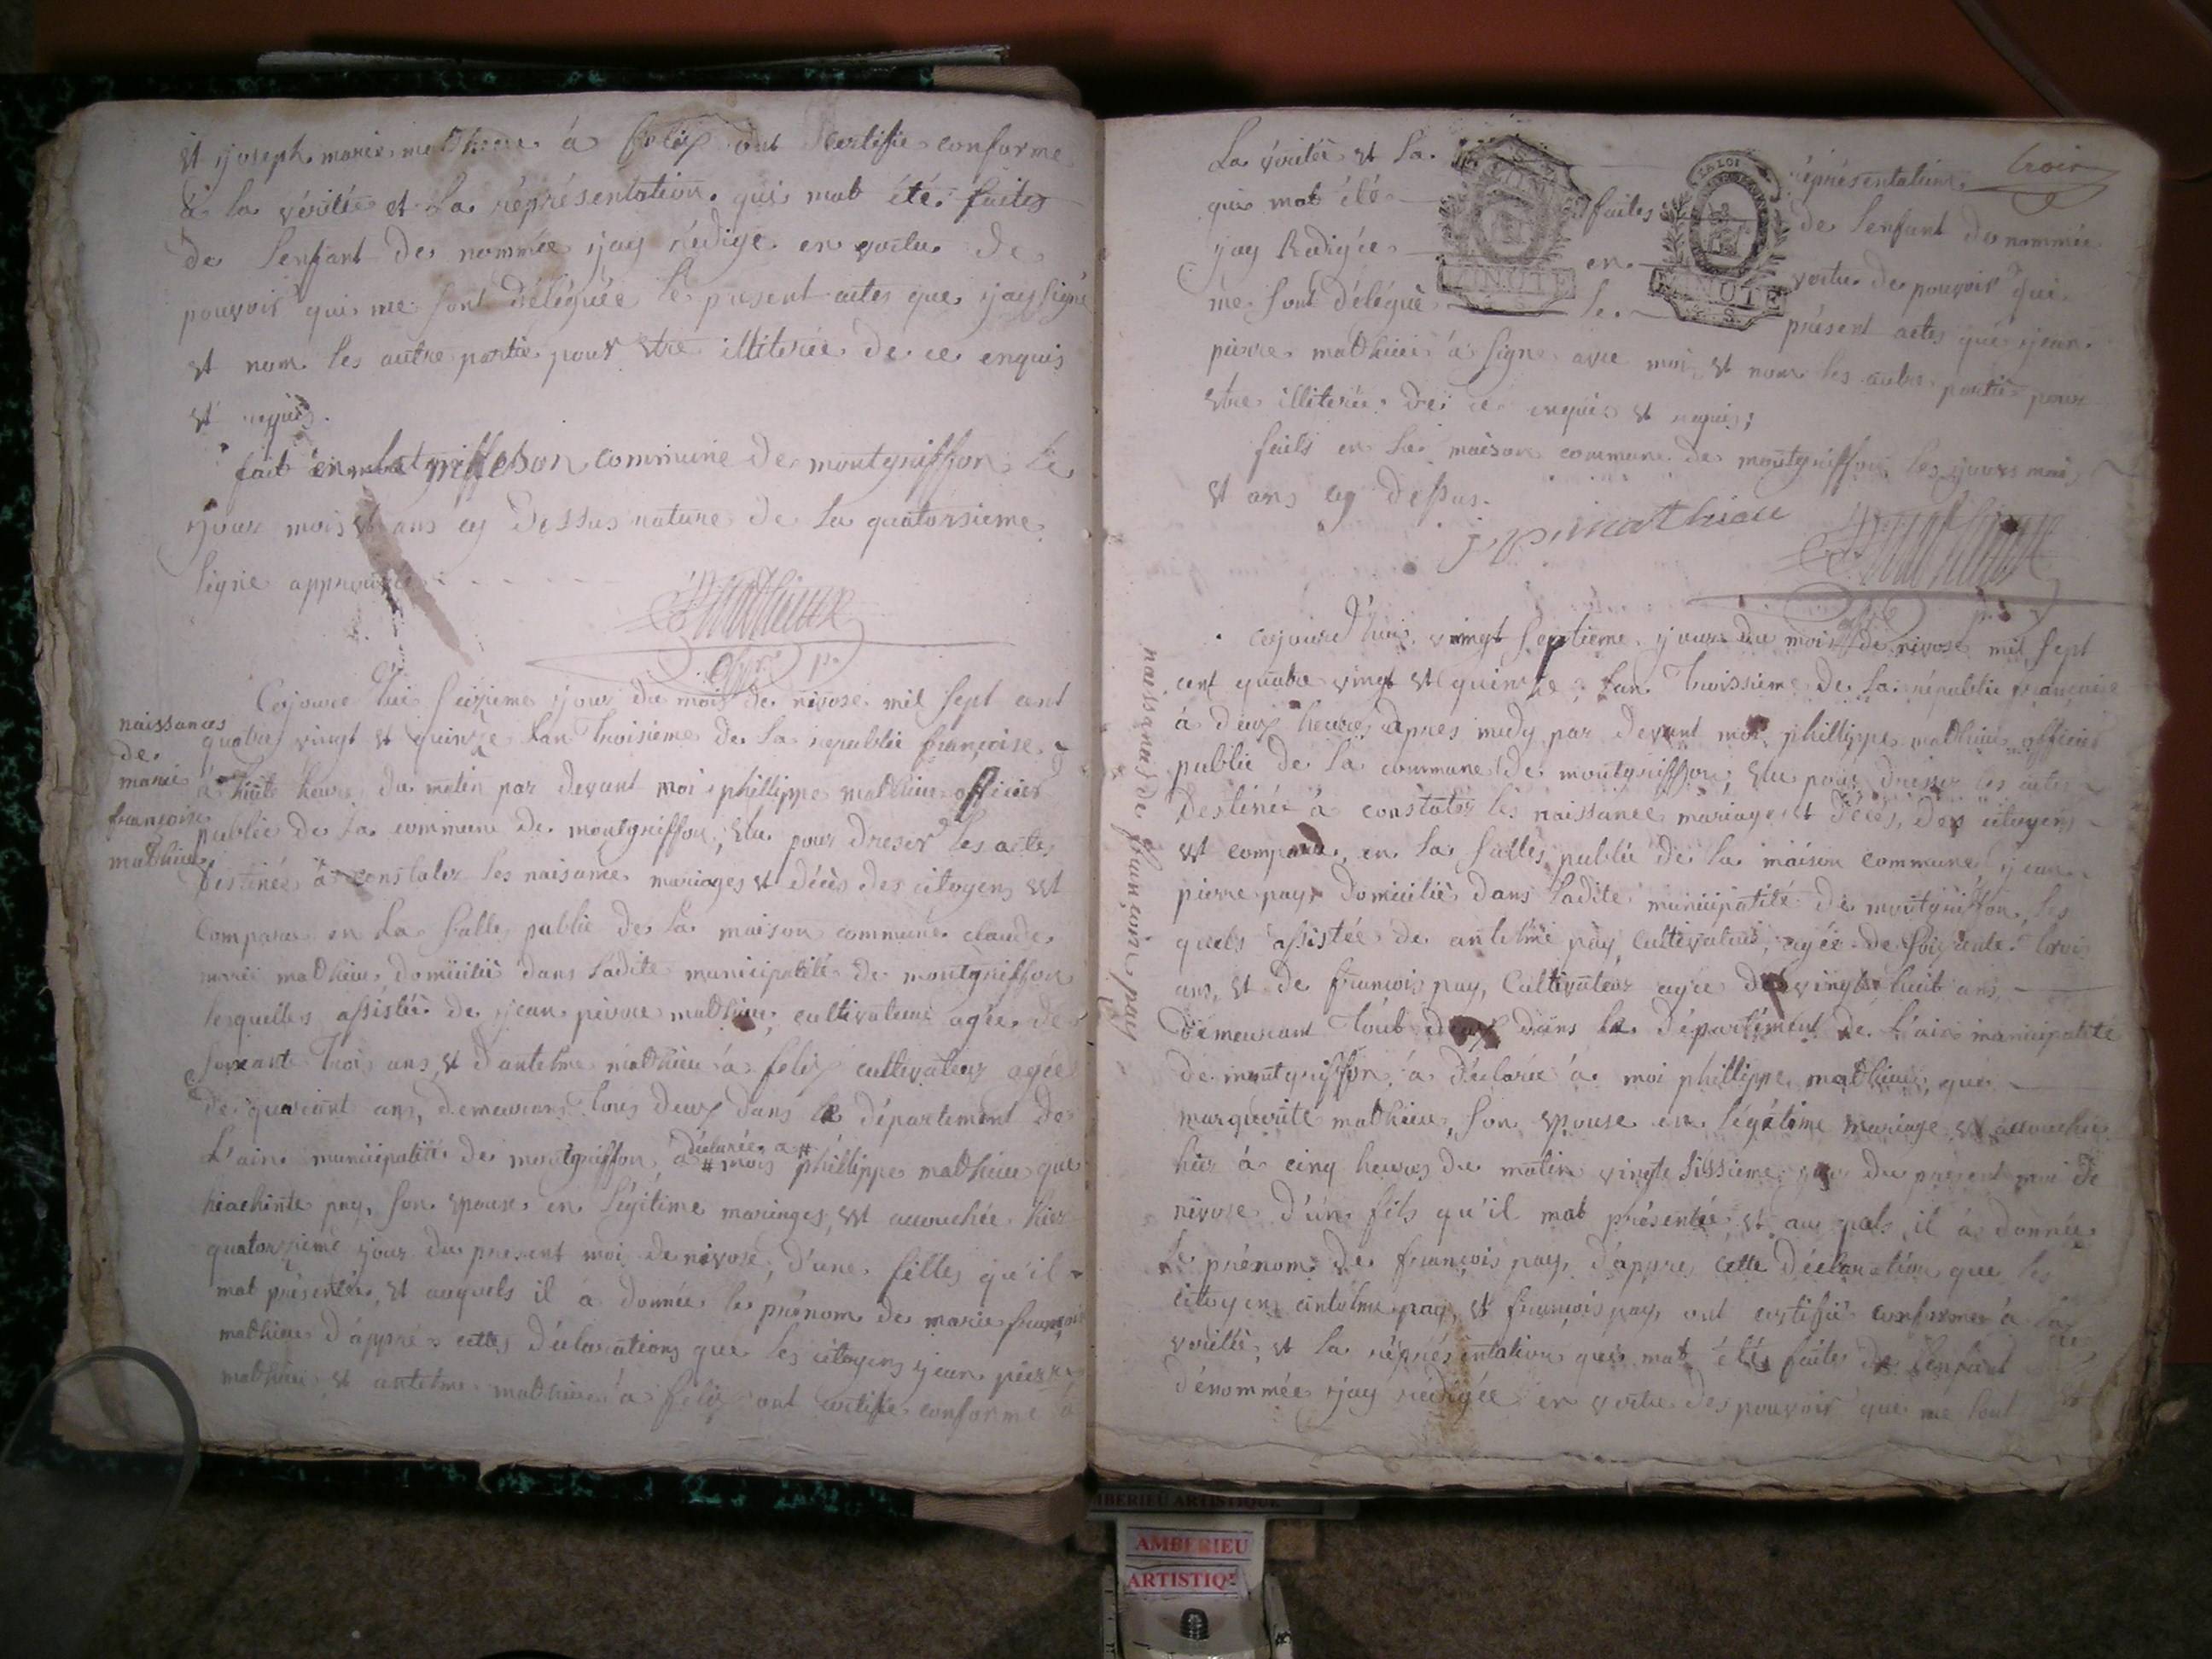 et joseph marie mathieu à felix ont certifie conforme
à la véritée et la réprésentation qui mat été faites
de lenfant de nommée jay rédige en vertu de
pouvoir qui me sont déléguée le present actes que jay signé
et nom les autre partie pour etre illiterée de ce enquis
et requis.
fait en commune de montgriffon le
jour mois et ans cy dessus nature de la quatorsieme
ligne approuvée
naissances
de
marie
françoise
mathieu
Cejourd'hui seizieme jour du mois de nivose mil sept cent
quatre vingt et quinze lan troisieme de la republic françoise
à huite heure du matin par devant moi phillippe mathieu officier
public de la commune de montgriffon, élu pour dreser les actes
destinée à constater les naisance mariages et décès des citoyens est
comparu en la salle public de la maison commune claude
marie mathieu domicilié dans ladite municipalité de montgriffon
lesquelles assistée de jean pierre mathieu cultivateur agée de
soixante trois ans et d'antelme mathieu à felix cultivateur agée
de quarant ans, demeurans tous deux dans le département de
L'ain municipalité de montgriffon à déclarée a # # mois phillippe mathieu que
hiachinte pay, son epouse en légitime mariages, est accouchée hier
quatorzieme jour du present moi de nivose, d'une filles qu'il
mat présentée, et auquels il à donnée le prénom de marie françoise
mathieu d'apprés cettes déclarations que les citoyens jean pierre
mathieu et antelme mathieu à felix ont certifie conforme à
La véritée et la réprésentation trois
qui mat été faites de lenfant de nommée
jay Rédigée en vertu de pouvoir qui
me sont délégué le présent actes que jean
pierre mathieu à signe avec moi et nom les autre partie pour
etre illiterée de ce enquis et requis;
faits en la maison commune de montgriffon les jours mois
et ans cy dessus.
j p mathieu
naissances de françois pay
cejourd'hui vingt septieme jour du mois de nivose mil sept
cent quatre vingt et quinze lan troissieme de la républic françoise
à deux heures apres midy par devant moi phillippe mathieu officier
public de la commune de montgriffon, élu pour dresser les actes
destinée à constater les naissance mariages et décès des citoyens
est comparu en la salles public de la maison commune, jean
pierre pay domicilié dans ladite municipalité de montgriffon, les
quels assistée de antelme pay cultivateur, agée de soizante trois
ans, et de françois pay, Cultivateur agée de vingt huit ans
demeurant tout deux dans le département de l'ain municipalité
de montgriffon, à déclarée à moi phillippe mathieu que
marguerite mathieu, son epouse en légitime mariage est accouchée
hier à cinq heures du matin vingte sissieme jour du present moi de
nivose d'un fils qu'il mat présentée et au quels il à donnée
le prénom de françois pay, d'appres cette déclaration que les
citoyen antelme pay, et françois pay, ont certifié conforme à la
véritée, et la réprésentation qui mat été faites de lenfant
dénommée jay rédigée en vertu des pouvoir que me sont
LA LOI
MINUTE
AMBERIEU ARTISTIQUE
AMBERIEU
ARTISTIQ